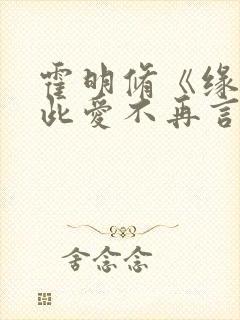 霍明脩《缘
此爱不再言
舍念念